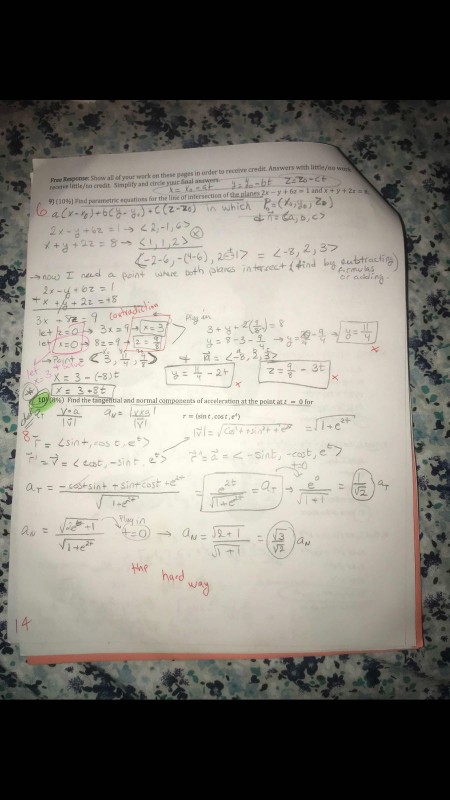 Free Response: Show all of your work on these pages in order to receive credit. Answers with little/no work
receive little/no credit. Simplify and circle your final answers.
9) (10%) Find parametric equations for the line of intersection of the planes 2x − y + 6z = 1 and x + y + 2z = 8.
6 a(x-x₀)+b(y-y₀)+c(z-z₀) in which P₀=(x₀,y₀,z₀)
n=(a,b,c)
2x-y+6z=1 → <2,-1,6>
x+y+2z=8 → <1,1,2>
<-2-6, -(4-6), 2+1> = <-8,2,3>
→ now I need a point where both planes intersect (find by subtracting formulas or adding.
2x-y+6z=1
+ x+y+2z=+8
3x+8z=9 contradiction
let z=0 → 3x=9 → x=3
let x=0 → 8z=9 → z=9/8
Plug in
3+y+2(9/8)=8
y=8-3-9/4 → y=20/4-9/4 → y=11/4
→ Point = <3, 11/4, 9/8> + n=<-8,2,3>
x=3-(-8)t
x=3+8t
y=11/4-2t
z=9/8-3t
10) (8%) Find the tangential and normal components of acceleration at the point at t = 0 for
r = (sin t, cos t, eᵗ)
8 r=<sint,cost,eᵗ>
r'=v=<cost,-sint,eᵗ>
r''=a=<-sint,-cost,eᵗ>
=√1+e²ᵗ
t=0
a_T = -costsint+sintcost+e²ᵗ / √1+e²ᵗ = e²ᵗ/√1+e²ᵗ = a_T → e⁰/√1+1 = 1/√2 a_T
a_N = √2e²ᵗ+1 / √1+e²ᵗ Plug in t=0 → a_N = √2+1 / √1+1 = √3/√2 a_N
the hard way
14